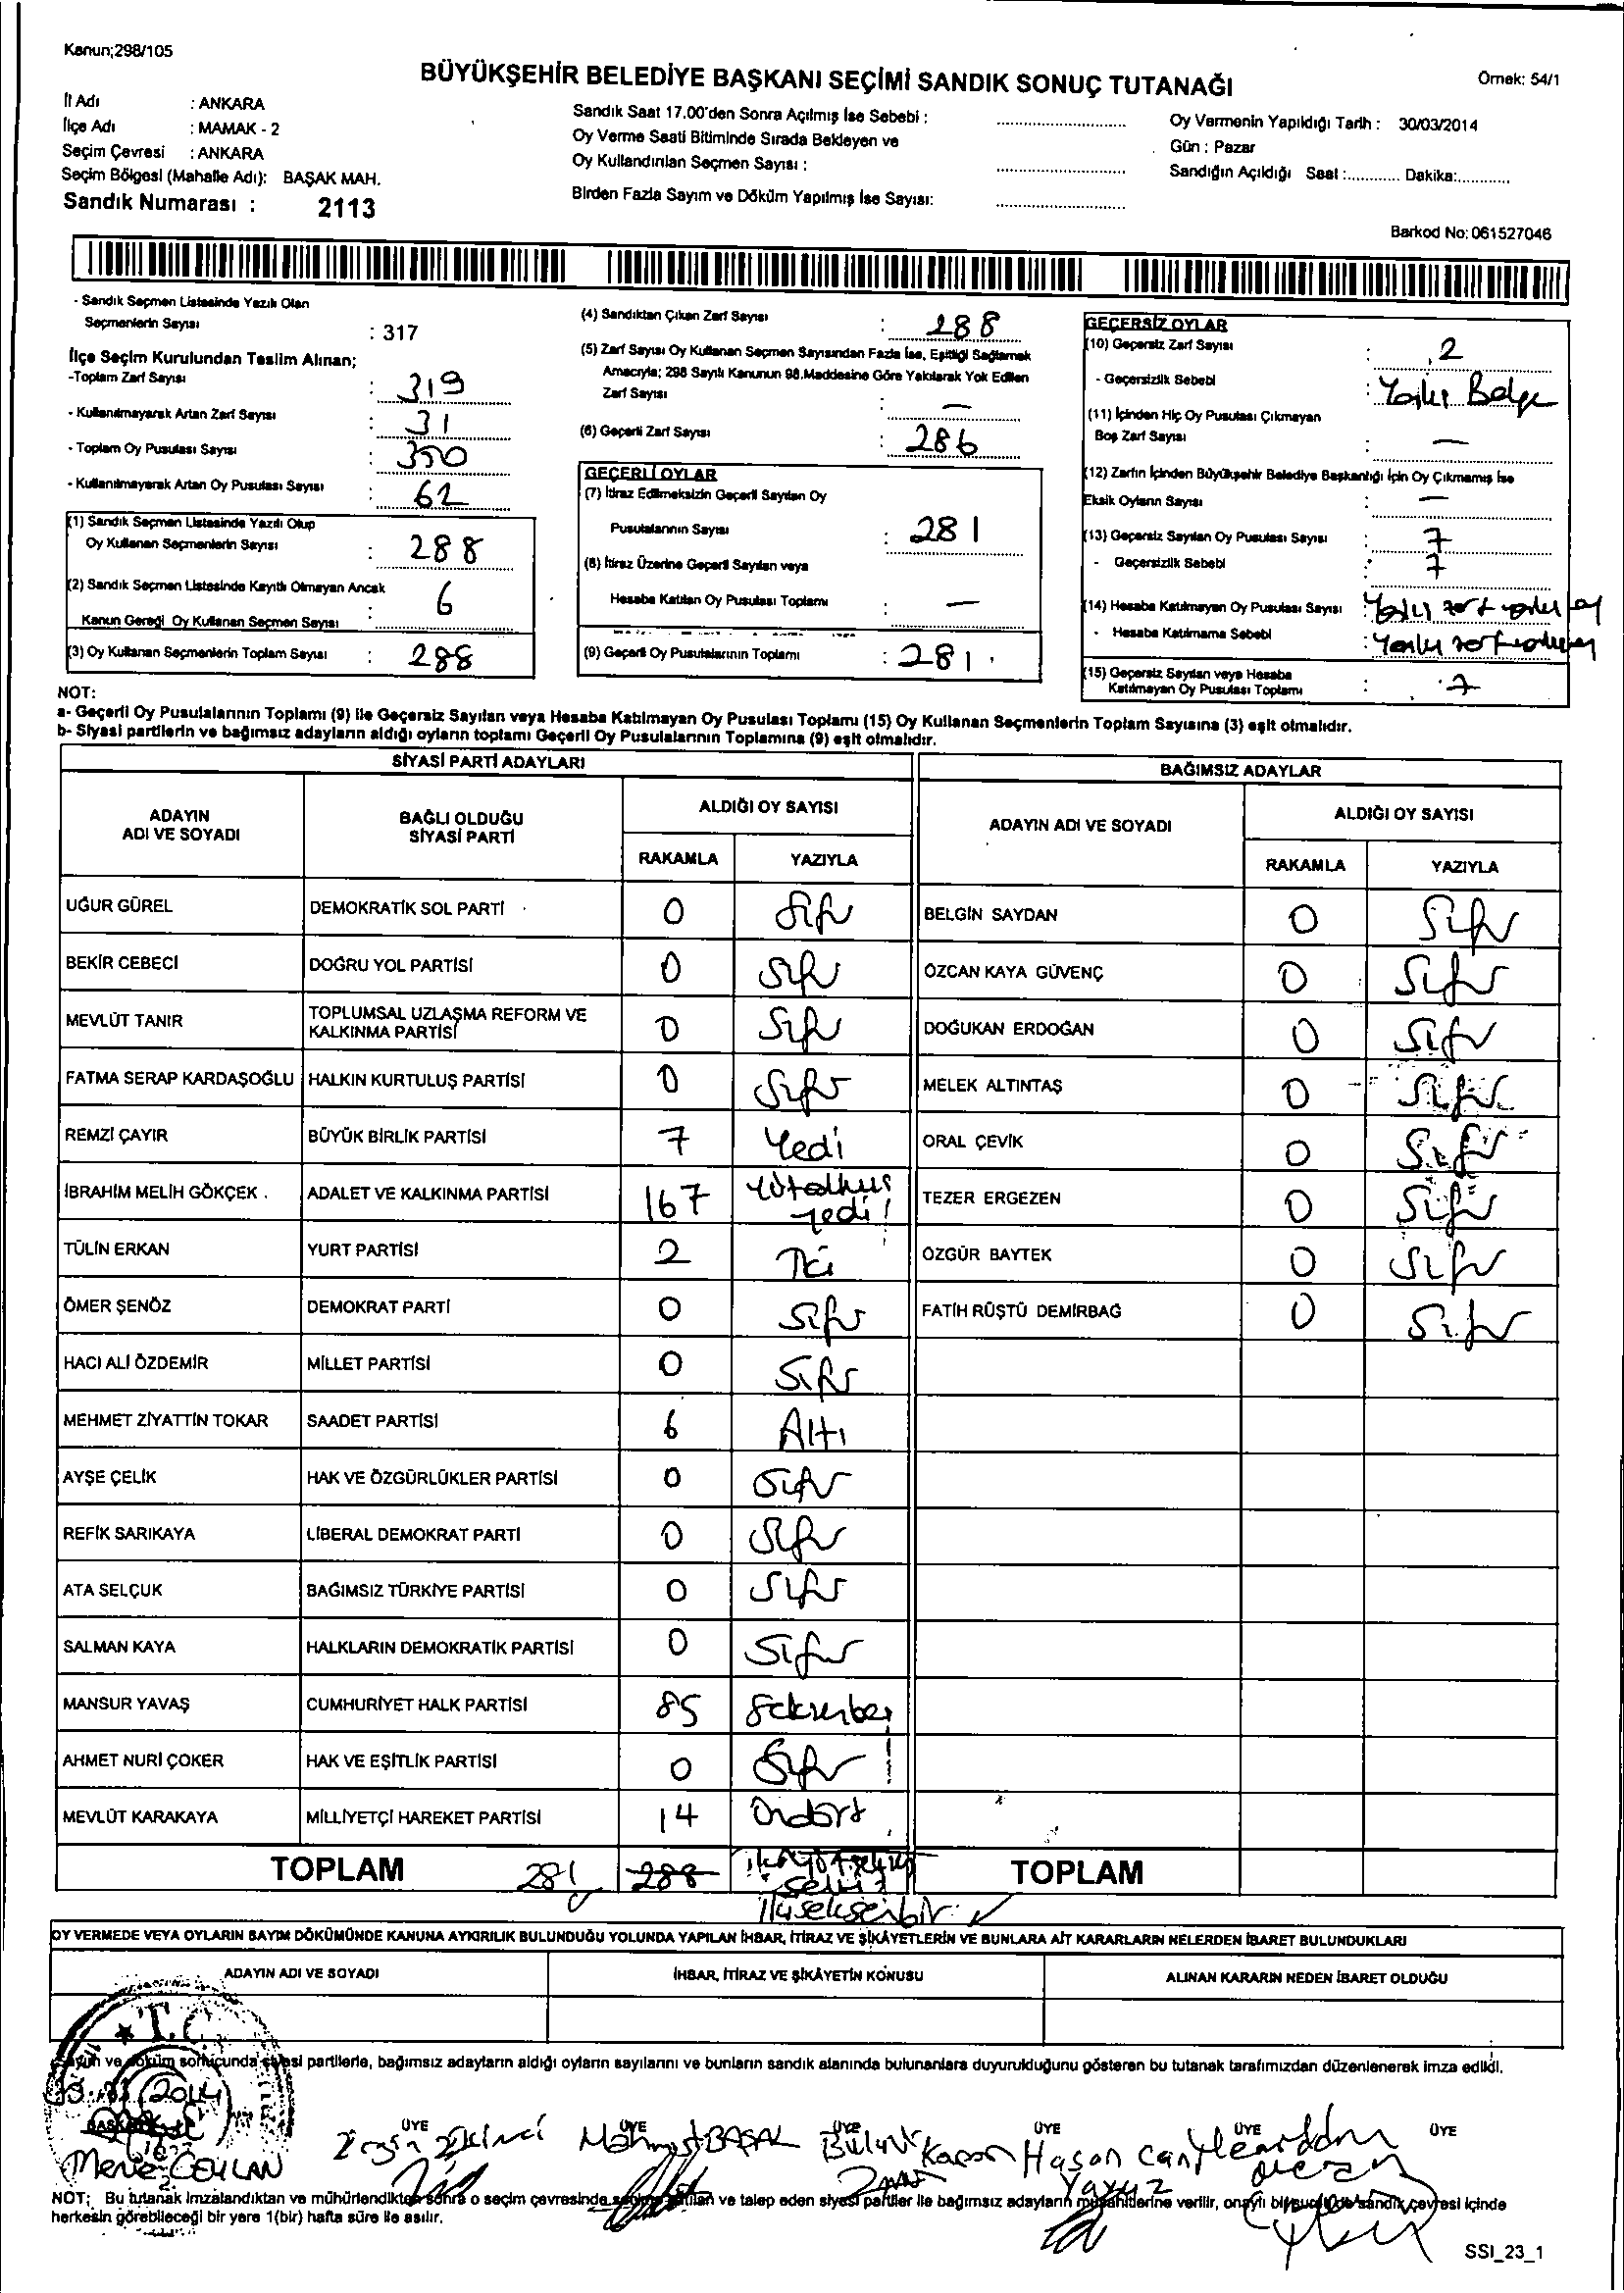 Kanun;298/105
BÜYÜKŞEHİR BELEDİYE BAŞKANI SEÇİMİ SANDIK SONUÇ TUTANAĞI
Örnek: 54/1
İl Adı : ANKARA
İlçe Adı : MAMAK - 2
Seçim Çevresi : ANKARA
Seçim Bölgesi (Mahalle Adı): BAŞAK MAH.
Sandık Numarası : 2113
Sandık Saat 17.00'den Sonra Açılmış İse Sebebi :
Oy Verme Saati Bitiminde Sırada Bekleyen ve
Oy Kullandırılan Seçmen Sayısı :
Birden Fazla Sayım ve Döküm Yapılmış İse Sayısı:
Oy Vermenin Yapıldığı Tarih : 30/03/2014
Gün : Pazar
Sandığın Açıldığı Saat :............ Dakika:...........
Barkod No: 061527046
- Sandık Seçmen Listesinde Yazılı Olan
Seçmenlerin Sayısı : 317
İlçe Seçim Kurulundan Teslim Alınan;
-Toplam Zarf Sayısı : 319
- Kullanılmayarak Artan Zarf Sayısı : 31
- Toplam Oy Pusulası Sayısı : 350
- Kullanılmayarak Artan Oy Pusulası Sayısı : 62
(1) Sandık Seçmen Listesinde Yazılı Olup
Oy Kullanan Seçmenlerin Sayısı : 288
(2) Sandık Seçmen Listesinde Kayıtlı Olmayan Ancak
Kanun Gereği Oy Kullanan Seçmen Sayısı : 6
(3) Oy Kullanan Seçmenlerin Toplam Sayısı : 288
(4) Sandıktan Çıkan Zarf Sayısı : 288
(5) Zarf Sayısı Oy Kullanan Seçmen Sayısından Fazla İse, Eşitliği Sağlamak
Amacıyla; 298 Sayılı Kanunun 98.Maddesine Göre Yakılarak Yok Edilen
Zarf Sayısı : —
(6) Geçerli Zarf Sayısı : 286
GEÇERLİ OYLAR
(7) İtiraz Edilmeksizin Geçerli Sayılan Oy
Pusulalarının Sayısı : 281
(8) İtiraz Üzerine Geçerli Sayılan veya
Hesaba Katılan Oy Pusulası Toplamı : —
(9) Geçerli Oy Pusulalarının Toplamı : 281
GEÇERSİZ OYLAR
(10) Geçersiz Zarf Sayısı : 2
- Geçersizlik Sebebi :
(11) İçinden Hiç Oy Pusulası Çıkmayan
Boş Zarf Sayısı : —
(12) Zarfın İçinden Büyükşehir Belediye Başkanlığı İçin Oy Çıkmamış İse
Eksik Oyların Sayısı : —
(13) Geçersiz Sayılan Oy Pusulası Sayısı : 7
- Geçersizlik Sebebi : 7
(14) Hesaba Katılmayan Oy Pusulası Sayısı :
- Hesaba Katılmama Sebebi :
(15) Geçersiz Sayılan veya Hesaba
Katılmayan Oy Pusulası Toplamı : 7
NOT:
a- Geçerli Oy Pusulalarının Toplamı (9) ile Geçersiz Sayılan veya Hesaba Katılmayan Oy Pusulası Toplamı (15) Oy Kullanan Seçmenlerin Toplam Sayısına (3) eşit olmalıdır.
b- Siyasi partilerin ve bağımsız adayların aldığı oyların toplamı Geçerli Oy Pusulalarının Toplamına (9) eşit olmalıdır.
SİYASİ PARTİ ADAYLARI
BAĞIMSIZ ADAYLAR
ADAYIN ADI VE SOYADI BAĞLI OLDUĞU SİYASİ PARTİ ALDIĞI OY SAYISI RAKAMLA YAZIYLA
ADAYIN ADI VE SOYADI ALDIĞI OY SAYISI RAKAMLA YAZIYLA
UĞUR GÜREL DEMOKRATİK SOL PARTİ 0 Sıfır BELGİN SAYDAN 0 Sıfır
BEKİR CEBECİ DOĞRU YOL PARTİSİ 0 Sıfır ÖZCAN KAYA GÜVENÇ 0 Sıfır
MEVLÜT TANIR TOPLUMSAL UZLAŞMA REFORM VE KALKINMA PARTİSİ 0 Sıfır DOĞUKAN ERDOĞAN 0 Sıfır
FATMA SERAP KARDAŞOĞLU HALKIN KURTULUŞ PARTİSİ 0 Sıfır MELEK ALTINTAŞ 0 Sıfır
REMZİ ÇAYIR BÜYÜK BİRLİK PARTİSİ 7 Yedi ORAL ÇEVİK 0 Sıfır
İBRAHİM MELİH GÖKÇEK . ADALET VE KALKINMA PARTİSİ 167 yüzaltmış yedi TEZER ERGEZEN 0 Sıfır
TÜLİN ERKAN YURT PARTİSİ 2 İki ÖZGÜR BAYTEK 0 Sıfır
ÖMER ŞENÖZ DEMOKRAT PARTİ 0 Sıfır FATİH RÜŞTÜ DEMİRBAĞ 0 Sıfır
HACI ALİ ÖZDEMİR MİLLET PARTİSİ 0 Sıfır
MEHMET ZİYATTİN TOKAR SAADET PARTİSİ 6 Altı
AYŞE ÇELİK HAK VE ÖZGÜRLÜKLER PARTİSİ 0 Sıfır
REFİK SARIKAYA LİBERAL DEMOKRAT PARTİ 0 Sıfır
ATA SELÇUK BAĞIMSIZ TÜRKİYE PARTİSİ 0 Sıfır
SALMAN KAYA HALKLARIN DEMOKRATİK PARTİSİ 0 Sıfır
MANSUR YAVAŞ CUMHURİYET HALK PARTİSİ 85 Seksenbeş
AHMET NURİ ÇOKER HAK VE EŞİTLİK PARTİSİ 0 Sıfır
MEVLÜT KARAKAYA MİLLİYETÇİ HAREKET PARTİSİ 14 Ondört
TOPLAM 281 288 TOPLAM
OY VERMEDE VEYA OYLARIN SAYIM DÖKÜMÜNDE KANUNA AYKIRILIK BULUNDUĞU YOLUNDA YAPILAN İHBAR, İTİRAZ VE ŞİKÂYETLERİN VE BUNLARA AİT KARARLARIN NELERDEN İBARET BULUNDUKLARI
ADAYIN ADI VE SOYADI İHBAR, İTİRAZ VE ŞİKÂYETİN KONUSU ALINAN KARARIN NEDEN İBARET OLDUĞU
T.C
Sayım ve döküm sonucunda siyasi partilerle, bağımsız adayların aldığı oyların sayılarını ve bunların sandık alanında bulunanlara duyurulduğunu gösteren bu tutanak tarafımızdan düzenlenerek imza edildi.
2014
BAŞKAN ÜYE ÜYE ÜYE ÜYE ÜYE ÜYE
Merve CEYLAN
NOT: Bu tutanak imzalandıktan ve mühürlendikten sonra o seçim çevresinde ve talep eden siyasi partiler ile bağımsız adayların müşahitlerine verilir, onaylı bir sureti de sandık çevresi içinde
herkesin görebileceği bir yere 1(bir) hafta süre ile asılır.
SSI_23_1